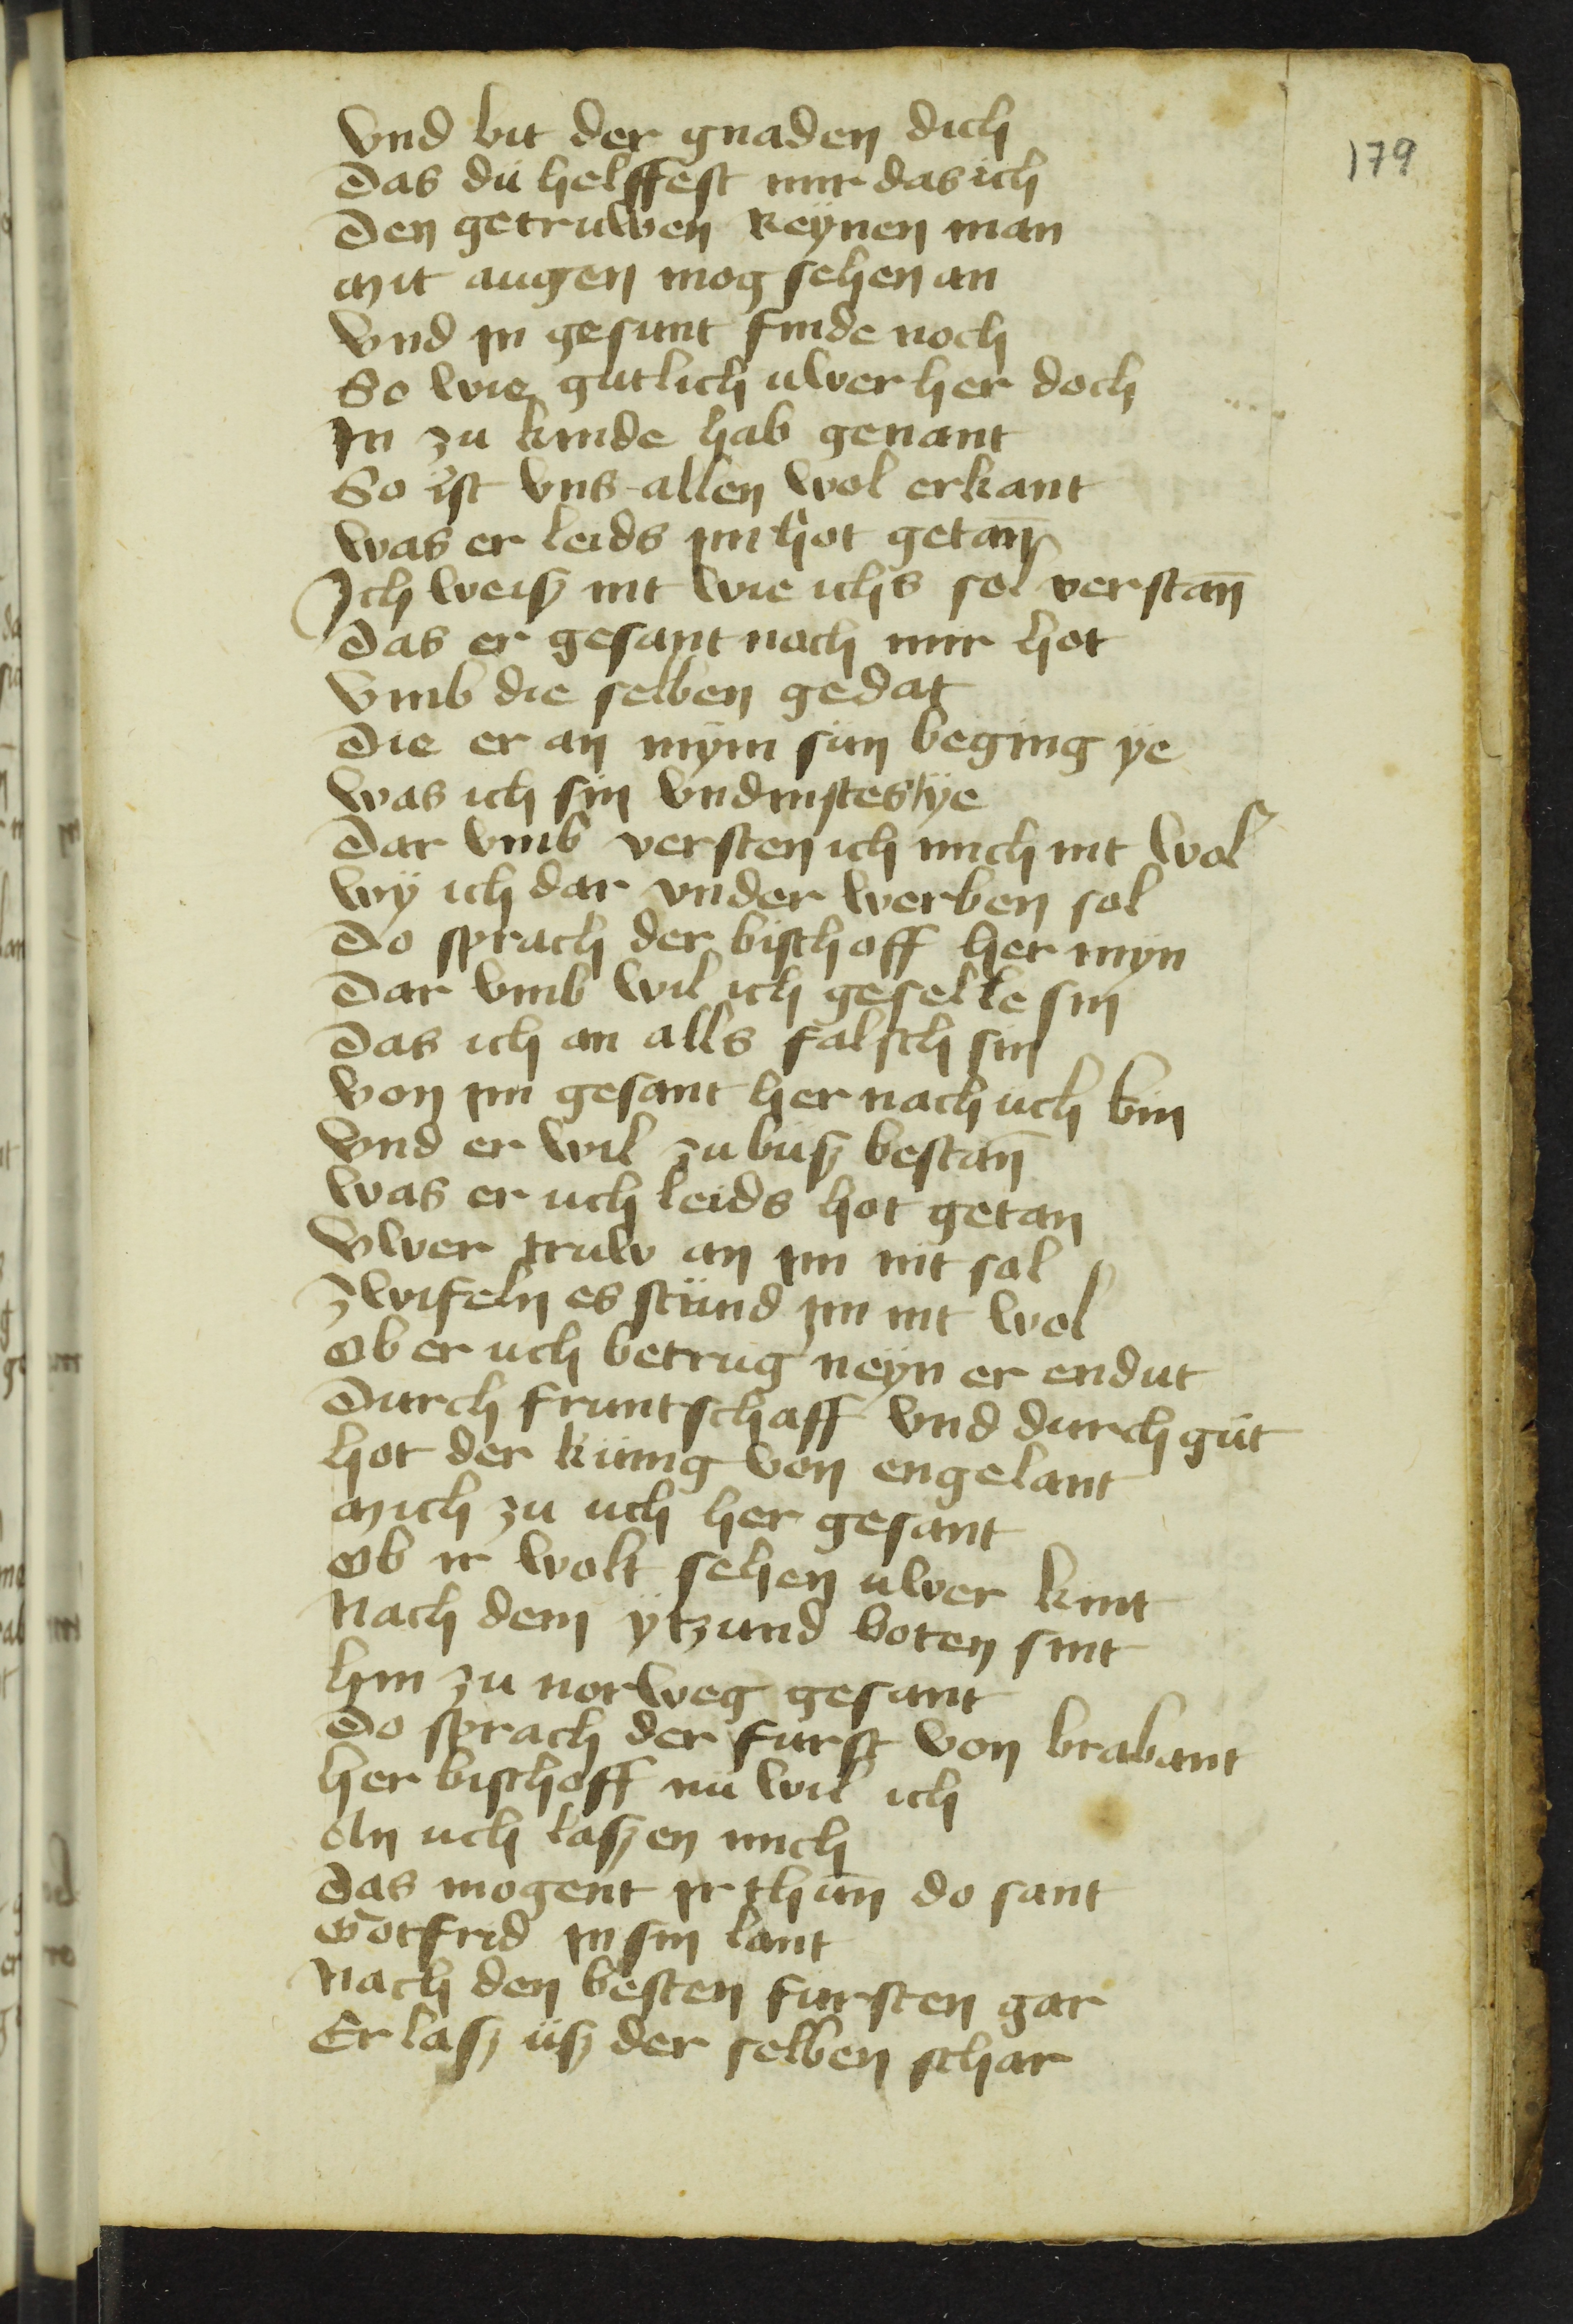 179
Vnd bit der gnaden dich
Das du helffest mir das ich
Den getruwen reynen man
Mit augen mog sehen an
Vnd in gesunt finde noch
So wie gutlich uwer her doch
In zu kinde hab genant
So ist vns allen wol erkant
Was er leids im hot getan
Ich weiß nit wie ichs sol verstan
Das er gesant noch mir hot
Vmb die selben gedat
Die er an mym sun beging ye
Was ich sin
Dar vmb versten ich mich nit wol
Wy ich dar vnder werben sol
Do sprach der bischoff her myn
Dar vmb wil ich geselle sin
Das ich an alls falsch sin
Von im gesant her nach uch bin
Vnd er wil zu buß bestan
Was er uch leids hot getan
Vwer truw an im nit sol
Zwifeln es stund im nit wol
Ob er uch betrug neyn er endut
Durch fruntschaff vnd durch gut
Hot der kunig von engelant
Mich zu uch her gesant
Ob ir wolt sehen uwer kint
Nach dem ytzund boten sint
Hin zu norweg gesant
Do sprach der furst von brabant
Her bischoff nu wil ich
An uch laßen mich
Das mogent ir thun do sant
Gotfrid in sin lant
Nach den besten fursten gar
Er laß uß der selben schar